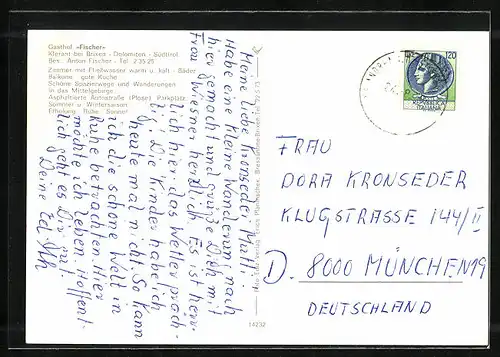 Gasthof »Fischer«
Klerant bei Brixen - Dolomiten - Südtirol
Bes. Anton Fischer - Tel. 2 35 21
Zimmer mit Fließwasser warm u. kalt - Bäder
Balkone - gute Küche
Schöne Spazierwege und Wanderungen
in das Mittelgebirge
Asphaltierte Autostraße (Plose) Parkplatz
Sommer u. Wintersaison
Erholung Ruhe Sonne!
Meine liebe Kronseder Mutti!
Habe eine kleine Wanderung nach
hier gemacht und grüße Dich mit
Frau Wiesner herzlich. Es ist herr-
lich hier, das Wetter präch-
tig. Die Kinder habe ich
heute mal nicht. So kann
ich die schöne Welt in
Ruhe betrachten. Hier
möchte ich leben. Hoffent-
lich geht es Dir gut.
Deine
14232
120
FRAU
DORA KRONSEDER
KLUGSTRASSE 144/II
D. 8000 MÜNCHEN 19
DEUTSCHLAND